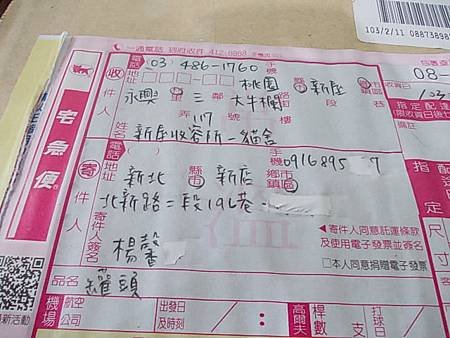 103/2/11 0887389
一通電話 到府收件 412-8888
宅急便
收件人
電話 (03) 486-1760 手機
地址 桃園 縣市 新屋 鄉鎮市區
永興 里 三 鄰 大牛欄 路街 段
巷 弄 117 號 樓
姓名 新屋收容所-貓舍
08-
指定配達
備註
寄件人
電話 ( ) 手機 0916895 7
地址 新北 縣市 新店 鄉鎮市區
北新路二段196巷
寄件人簽名 楊馨
寄件人同意託運條款
及使用電子發票並簽名
本人同意捐贈電子發票
指定
尺寸
品名 罐頭
機場
航空公司
出發日及時刻 / :
高爾夫
桿數 支
打球日 /
最新活動